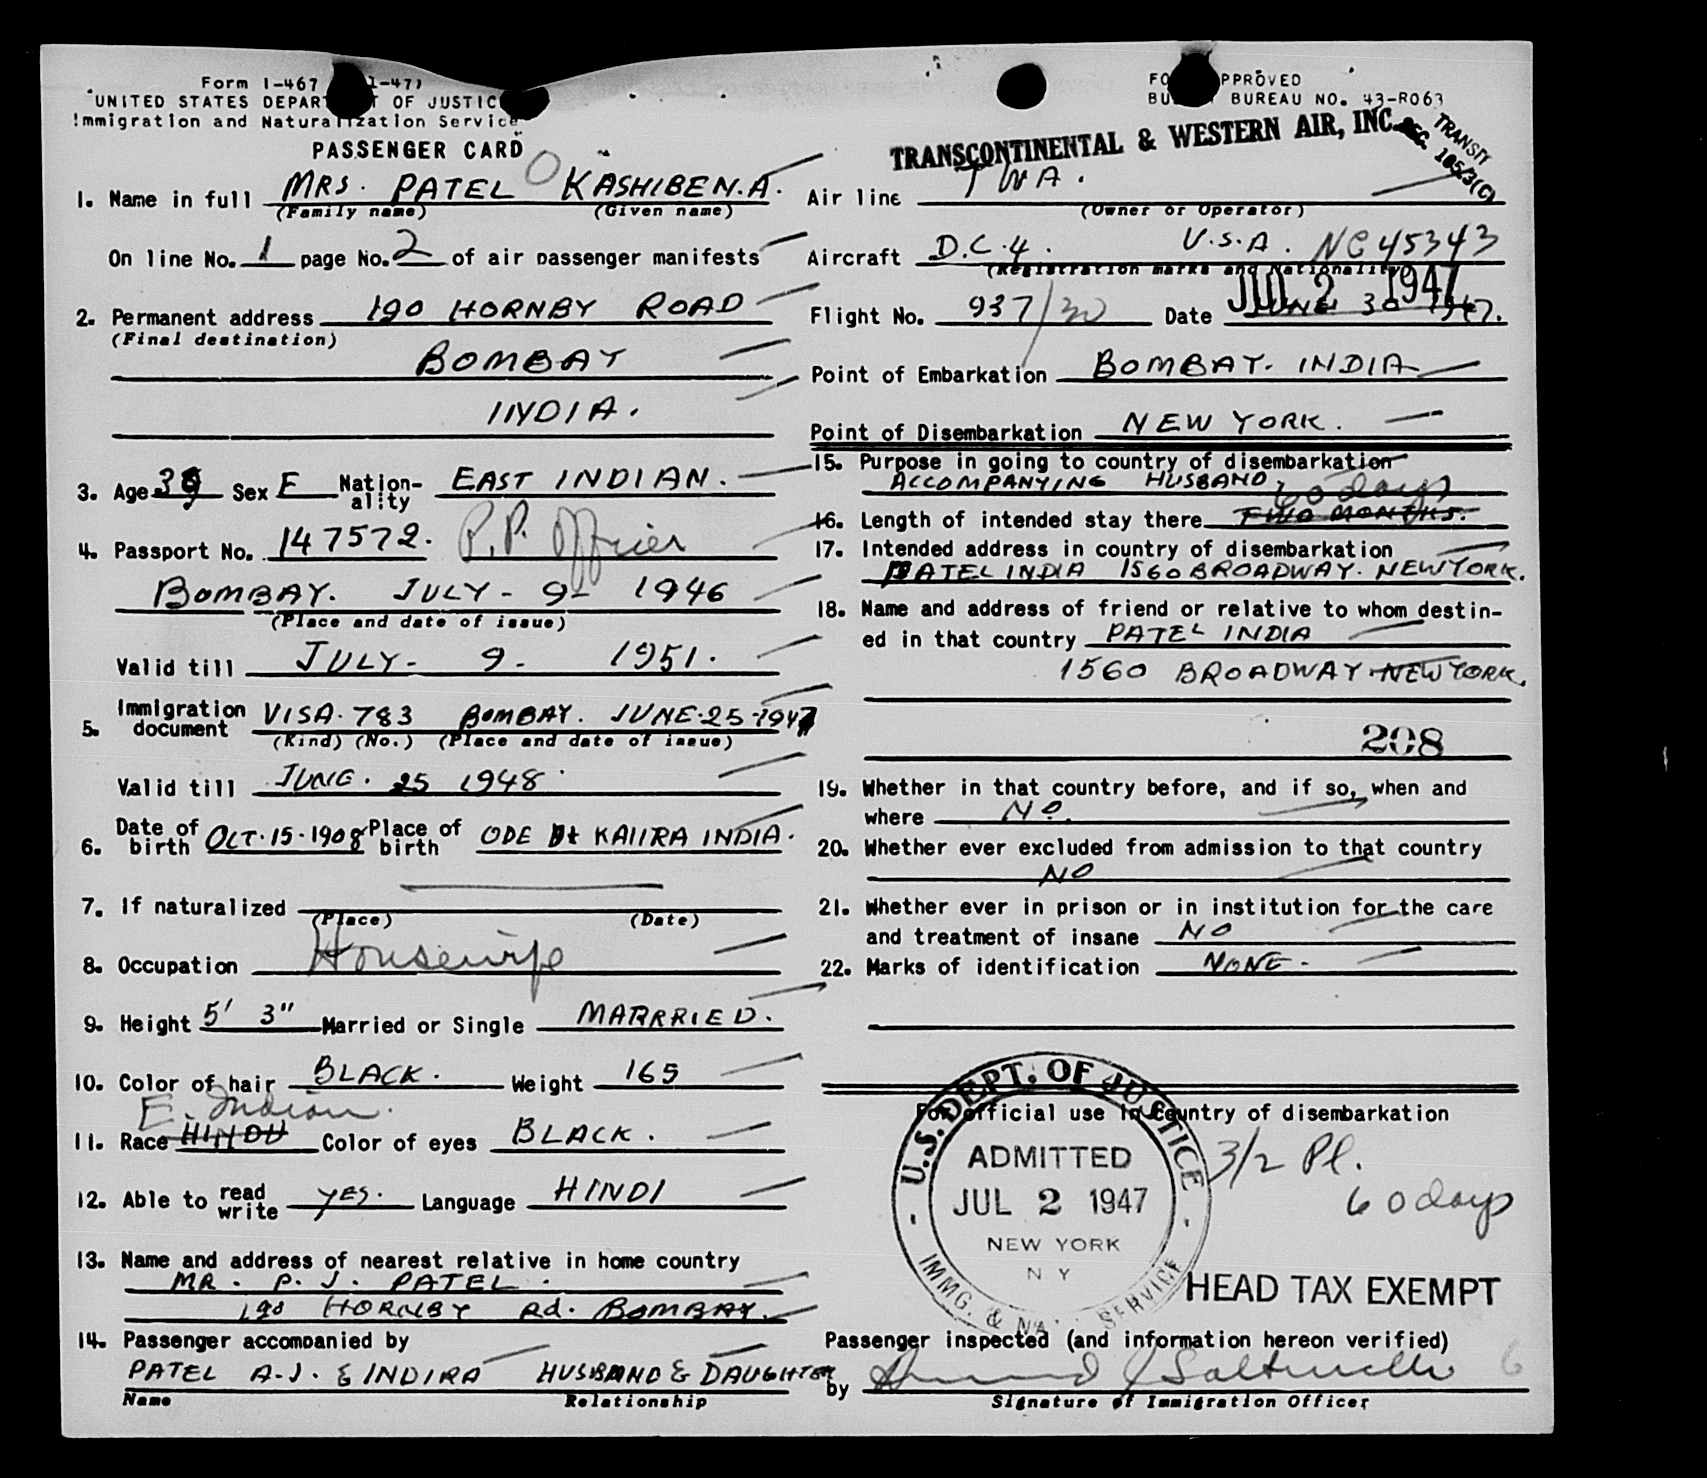 Form I-467
UNITED STATES DEPARTMENT OF JUSTICE
Immigration and Naturalization Service
PASSENGER CARD
1. Name in full MRS. PATEL KASHIBEN.A.
(Family name) (Given name)
On line No. 1 page No. 2 of air passenger manifests
2. Permanent address 190 HORNBY ROAD
(Final destination)
BOMBAY
INDIA.
3. Age 39 Sex F Nation-ality EAST INDIAN.
4. Passport No. 147572. P.P. Officer
BOMBAY. JULY - 9 - 1946
(Place and date of issue)
Valid till JULY - 9 - 1951.
5. Immigration document VISA. 783 BOMBAY. JUNE-25-1947
(Kind) (No.) (Place and date of issue)
Valid till JUNE. 25 1948
6. Date of birth OCT.15.1908 Place of birth ODE Dt KAIIRA INDIA.
7. If naturalized
(Place) (Date)
8. Occupation Housewife
9. Height 5' 3" Married or Single MARRRIED.
10. Color of hair BLACK. Weight 165
E. Indian.
11. Race HINDU Color of eyes BLACK.
12. Able to read write YES. Language HINDI
13. Name and address of nearest relative in home country
MR. P. J. PATEL.
190 HORNBY Rd. BOMBAY.
14. Passenger accompanied by
PATEL A.J. & INDIRA HUSBAND & DAUGHTER
Name Relationship
FORM APPROVED
BUDGET BUREAU NO. 43-R063
TRANSCONTINENTAL & WESTERN AIR, INC.
TRANSIT
SEC. 1053(C)
Air line TWA.
(Owner or Operator)
Aircraft D.C.4. U.S.A. NC 45343
(Registration marks and Nationality)
JUL 2 1947
Flight No. 937/30 Date JUNE 30 1947.
Point of Embarkation BOMBAY. INDIA
Point of Disembarkation NEW YORK.
15. Purpose in going to country of disembarkation
ACCOMPANYING HUSBAND,
60 days
16. Length of intended stay there TWO MONTHS.
17. Intended address in country of disembarkation
PATEL INDIA 1560 BROADWAY. NEWYORK.
18. Name and address of friend or relative to whom destin-
ed in that country PATEL INDIA
1560 BROADWAY NEWYORK.
208
19. Whether in that country before, and if so, when and
where NO.
20. Whether ever excluded from admission to that country
NO
21. Whether ever in prison or in institution for the care
and treatment of insane NO
22. Marks of identification NONE-
For official use in country of disembarkation
U.S. DEPT. OF JUSTICE
ADMITTED
JUL 2 1947
NEW YORK
N Y
IMMG. & NAT. SERVICE
3/2 Pl.
60 days
HEAD TAX EXEMPT
Passenger inspected (and information hereon verified)
by
Signature of Immigration Officer